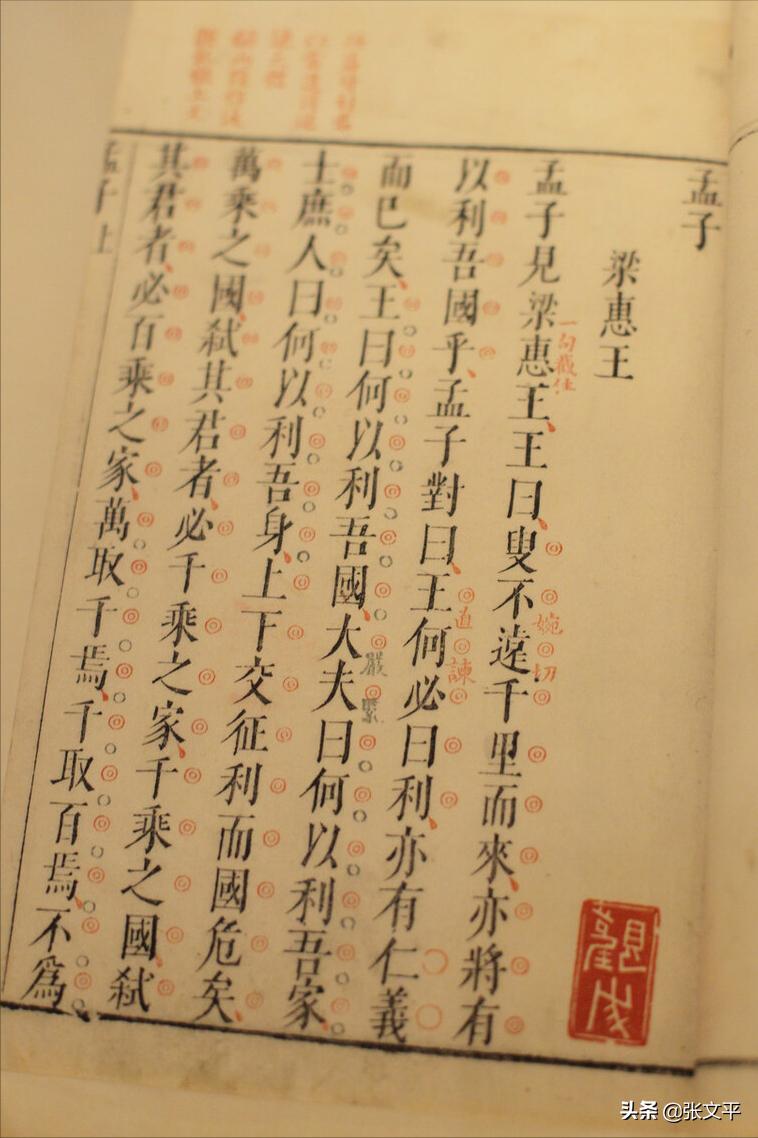 孟子
梁惠王
孟子見梁惠王、王曰、叟不遠千里而來、亦將有
一句截住
婉切
以利吾國乎、孟子對曰、王何必曰利、亦有仁義
直諫
而已矣、王曰何以利吾國、大夫曰何以利吾家、
嚴緊
士庶人曰何以利吾身、上下交征利而國危矣、
萬乘之國、弑其君者、必千乘之家、千乘之國、弑
其君者、必百乘之家、萬取千焉、千取百焉、不爲
孟子上
头条 @张文平